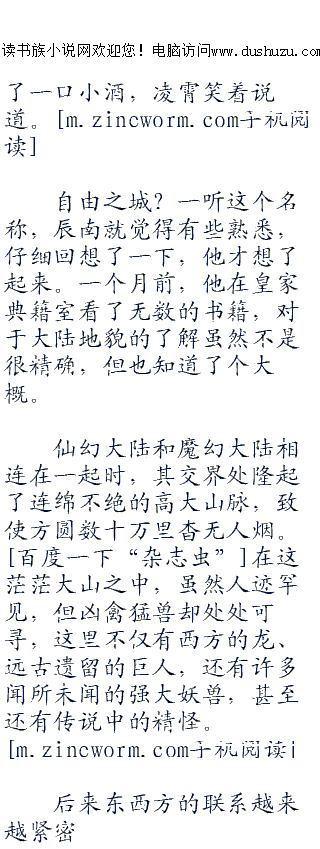 读书族小说网欢迎您！电脑访问www.dushuzu.com
了一口小酒，凌霄笑着说
道。[m.zincworm.com手机阅
读]
自由之城？一听这个名
称，辰南就觉得有些熟悉，
仔细回想了一下，他才想了
起来。一个月前，他在皇家
典籍室看了无数的书籍，对
于大陆地貌的了解虽然不是
很精确，但也知道了个大
概。
仙幻大陆和魔幻大陆相
连在一起时，其交界处隆起
了连绵不绝的高大山脉，致
使方圆数十万里杳无人烟。
[百度一下“杂志虫”]在这
茫茫大山之中，虽然人迹罕
见，但凶禽猛兽却处处可
寻，这里不仅有西方的龙、
远古遗留的巨人，还有许多
闻所未闻的强大妖兽，甚至
还有传说中的精怪。
[m.zincworm.com手机阅读i
后来东西方的联系越来
越紧密